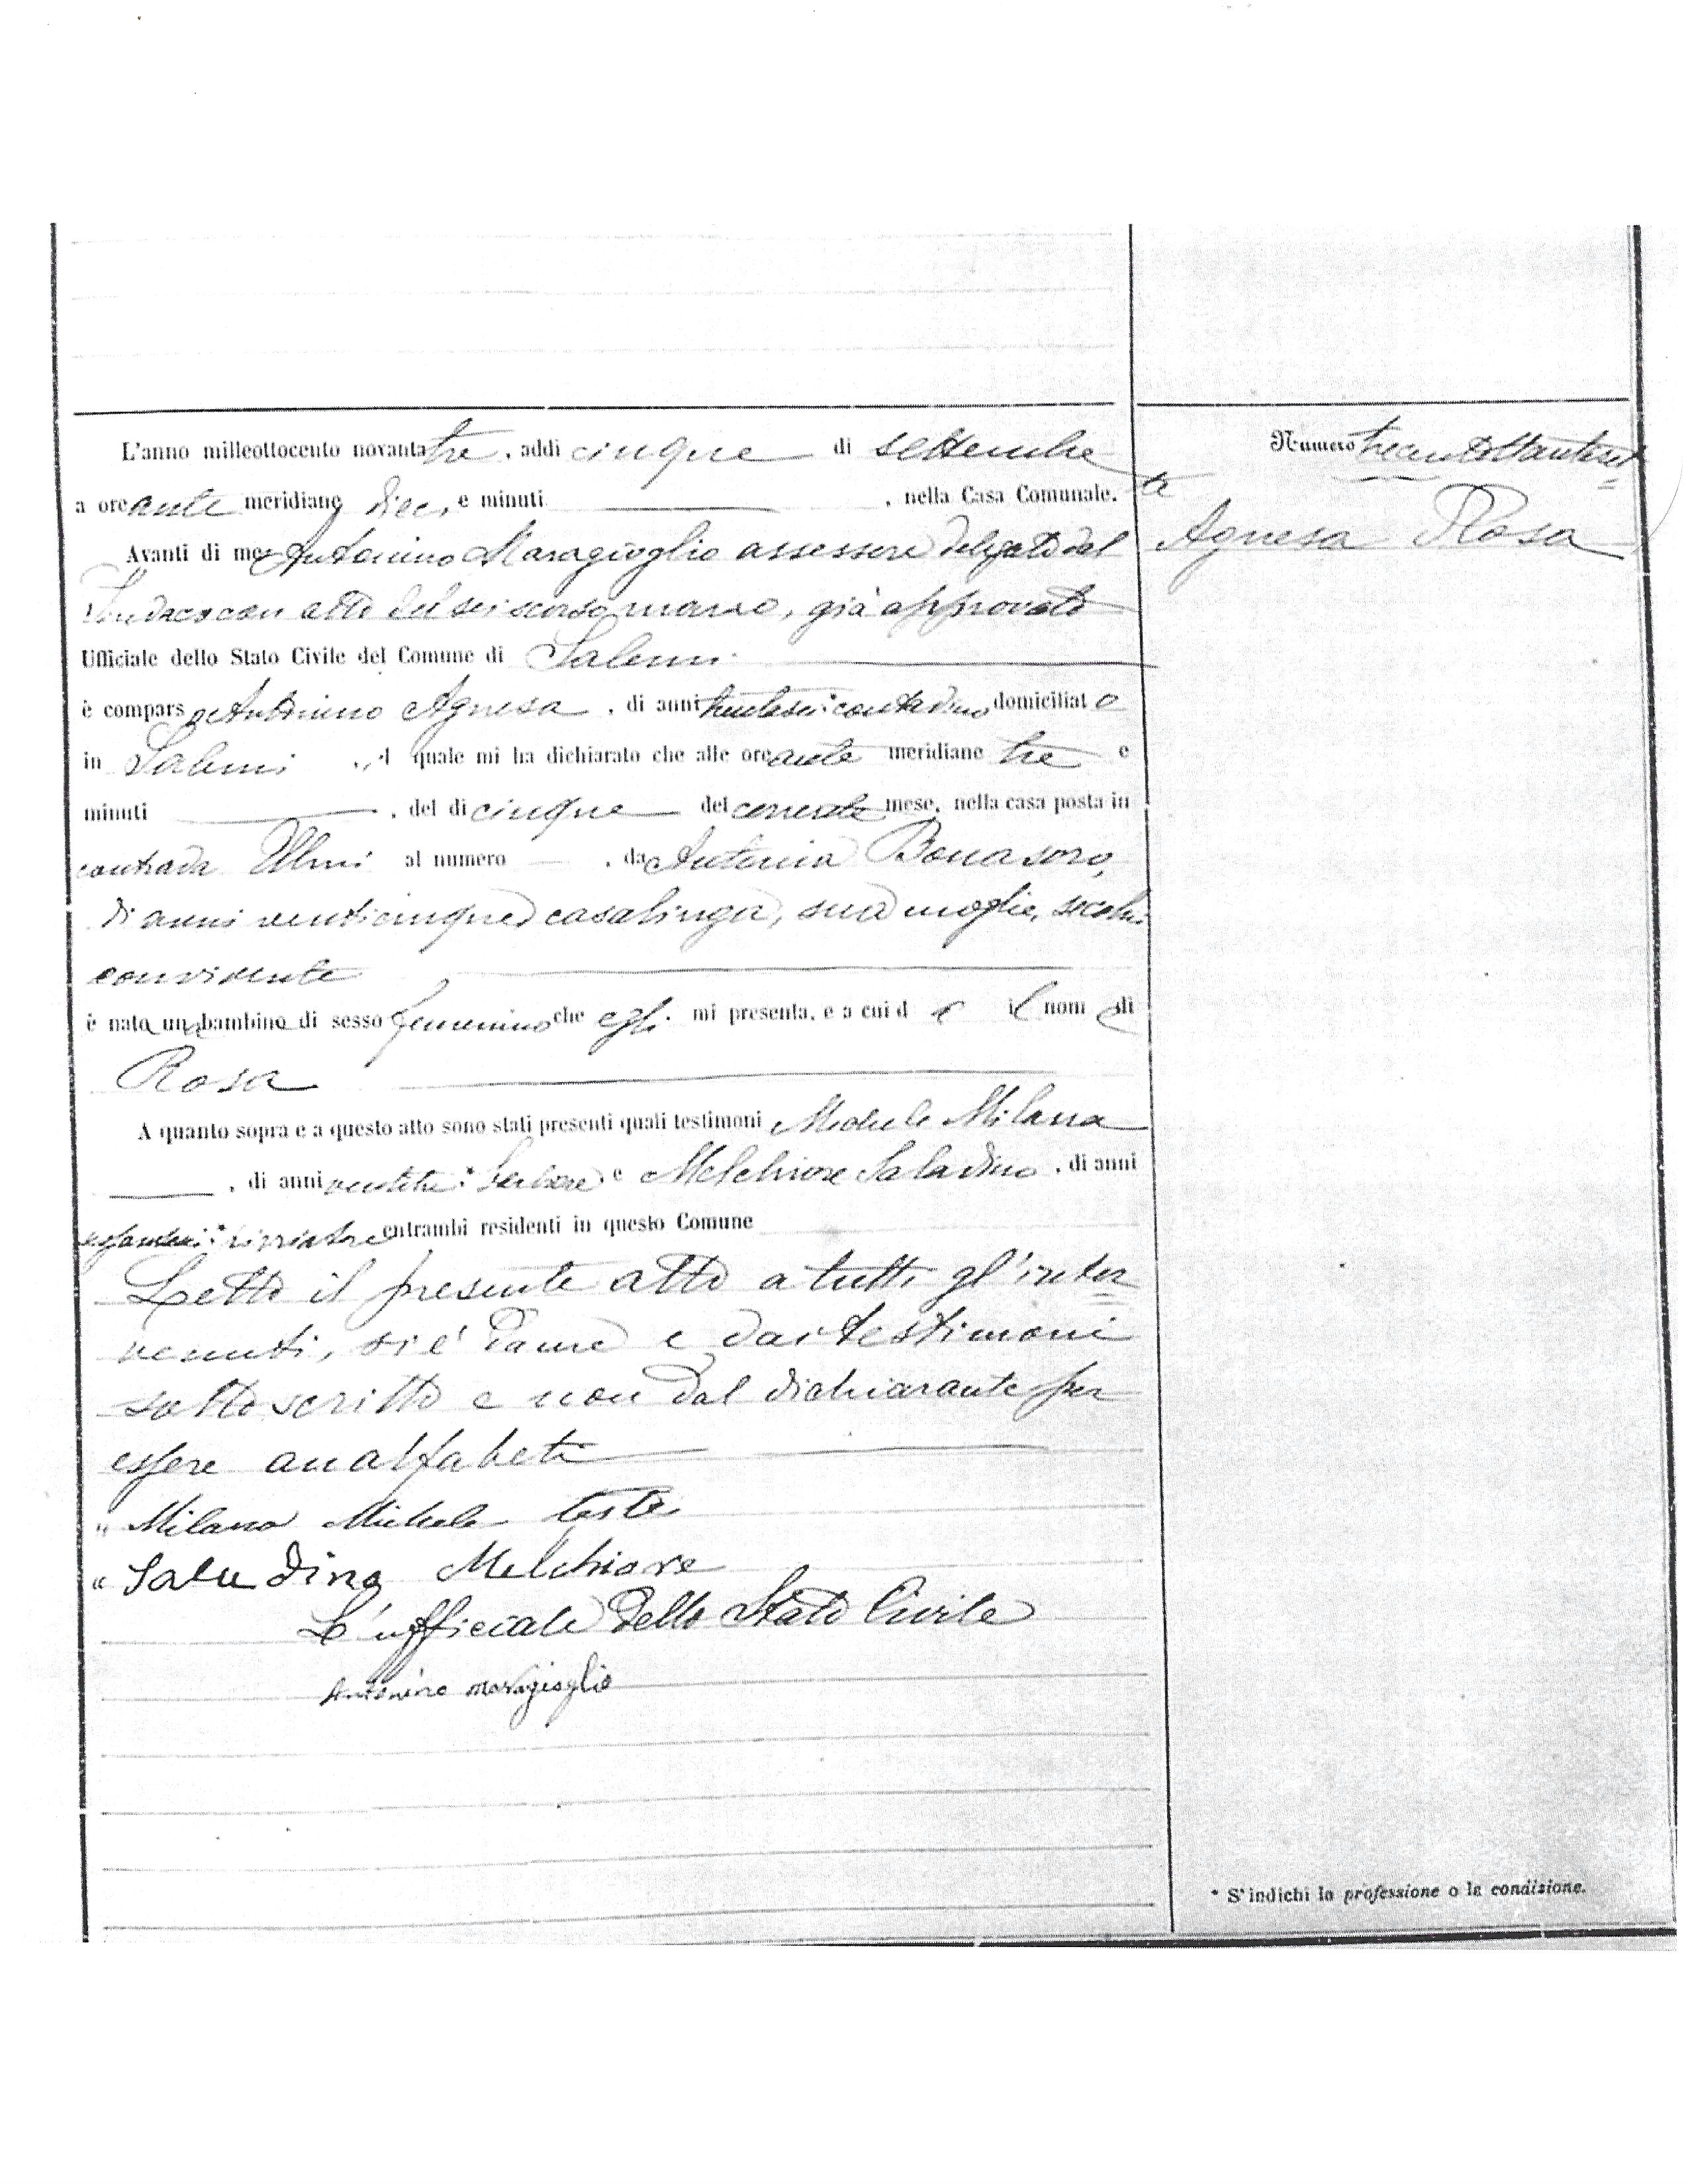 L'anno milleottocento novantatre, addì cinque di settembre
a ore ante meridiane dieci, e minuti , nella Casa Comunale.
Avanti di me Antonino Maragioglio assessore delegato dal
Sindaco con atto del sei scorso marzo, già approvato
Ufficiale dello Stato Civile del Comune di Salemi
è comparso Antonino Agnesa, di anni trentasei * contadino domiciliato
in Salemi, il quale mi ha dichiarato che alle ore ante meridiane tre e
minuti , del dì cinque del corrente mese, nella casa posta in
contrada Ulmi al numero — , da Antonia Bonasoro,
di anni venticinque casalinga, sua moglie, secolui
convivente
è nato un bambino di sesso femenino che egli mi presenta, e a cui dà il nome di
Rosa
A quanto sopra e a questo atto sono stati presenti quali testimoni Michele Milana
, di anni * e Melchiore Saladino, di anni
* entrambi residenti in questo Comune
Letto il presente atto a tutti gl'inter=
venuti, si é da me e dai testimoni
sottoscritto e non dal dichiarante per
essere analfabeta
" Milana Michele teste
" Saladino Melchiore
L'ufficiale dello Stato Civile
Antonino Maragioglio
Numero trecentottantaset=
te
Agnesa Rosa
* S'indichi la professione o la condizione.